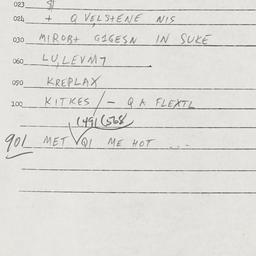 023 $1
024 + Q VELSTENE NIS
030 MIROB+ G1GESN IN SUKE
060 LU,LEVM7
090 KREPLAX
100 KITKES / - Q A FLEXTL
1491 (568
901 MET Q1 ME HOT ...